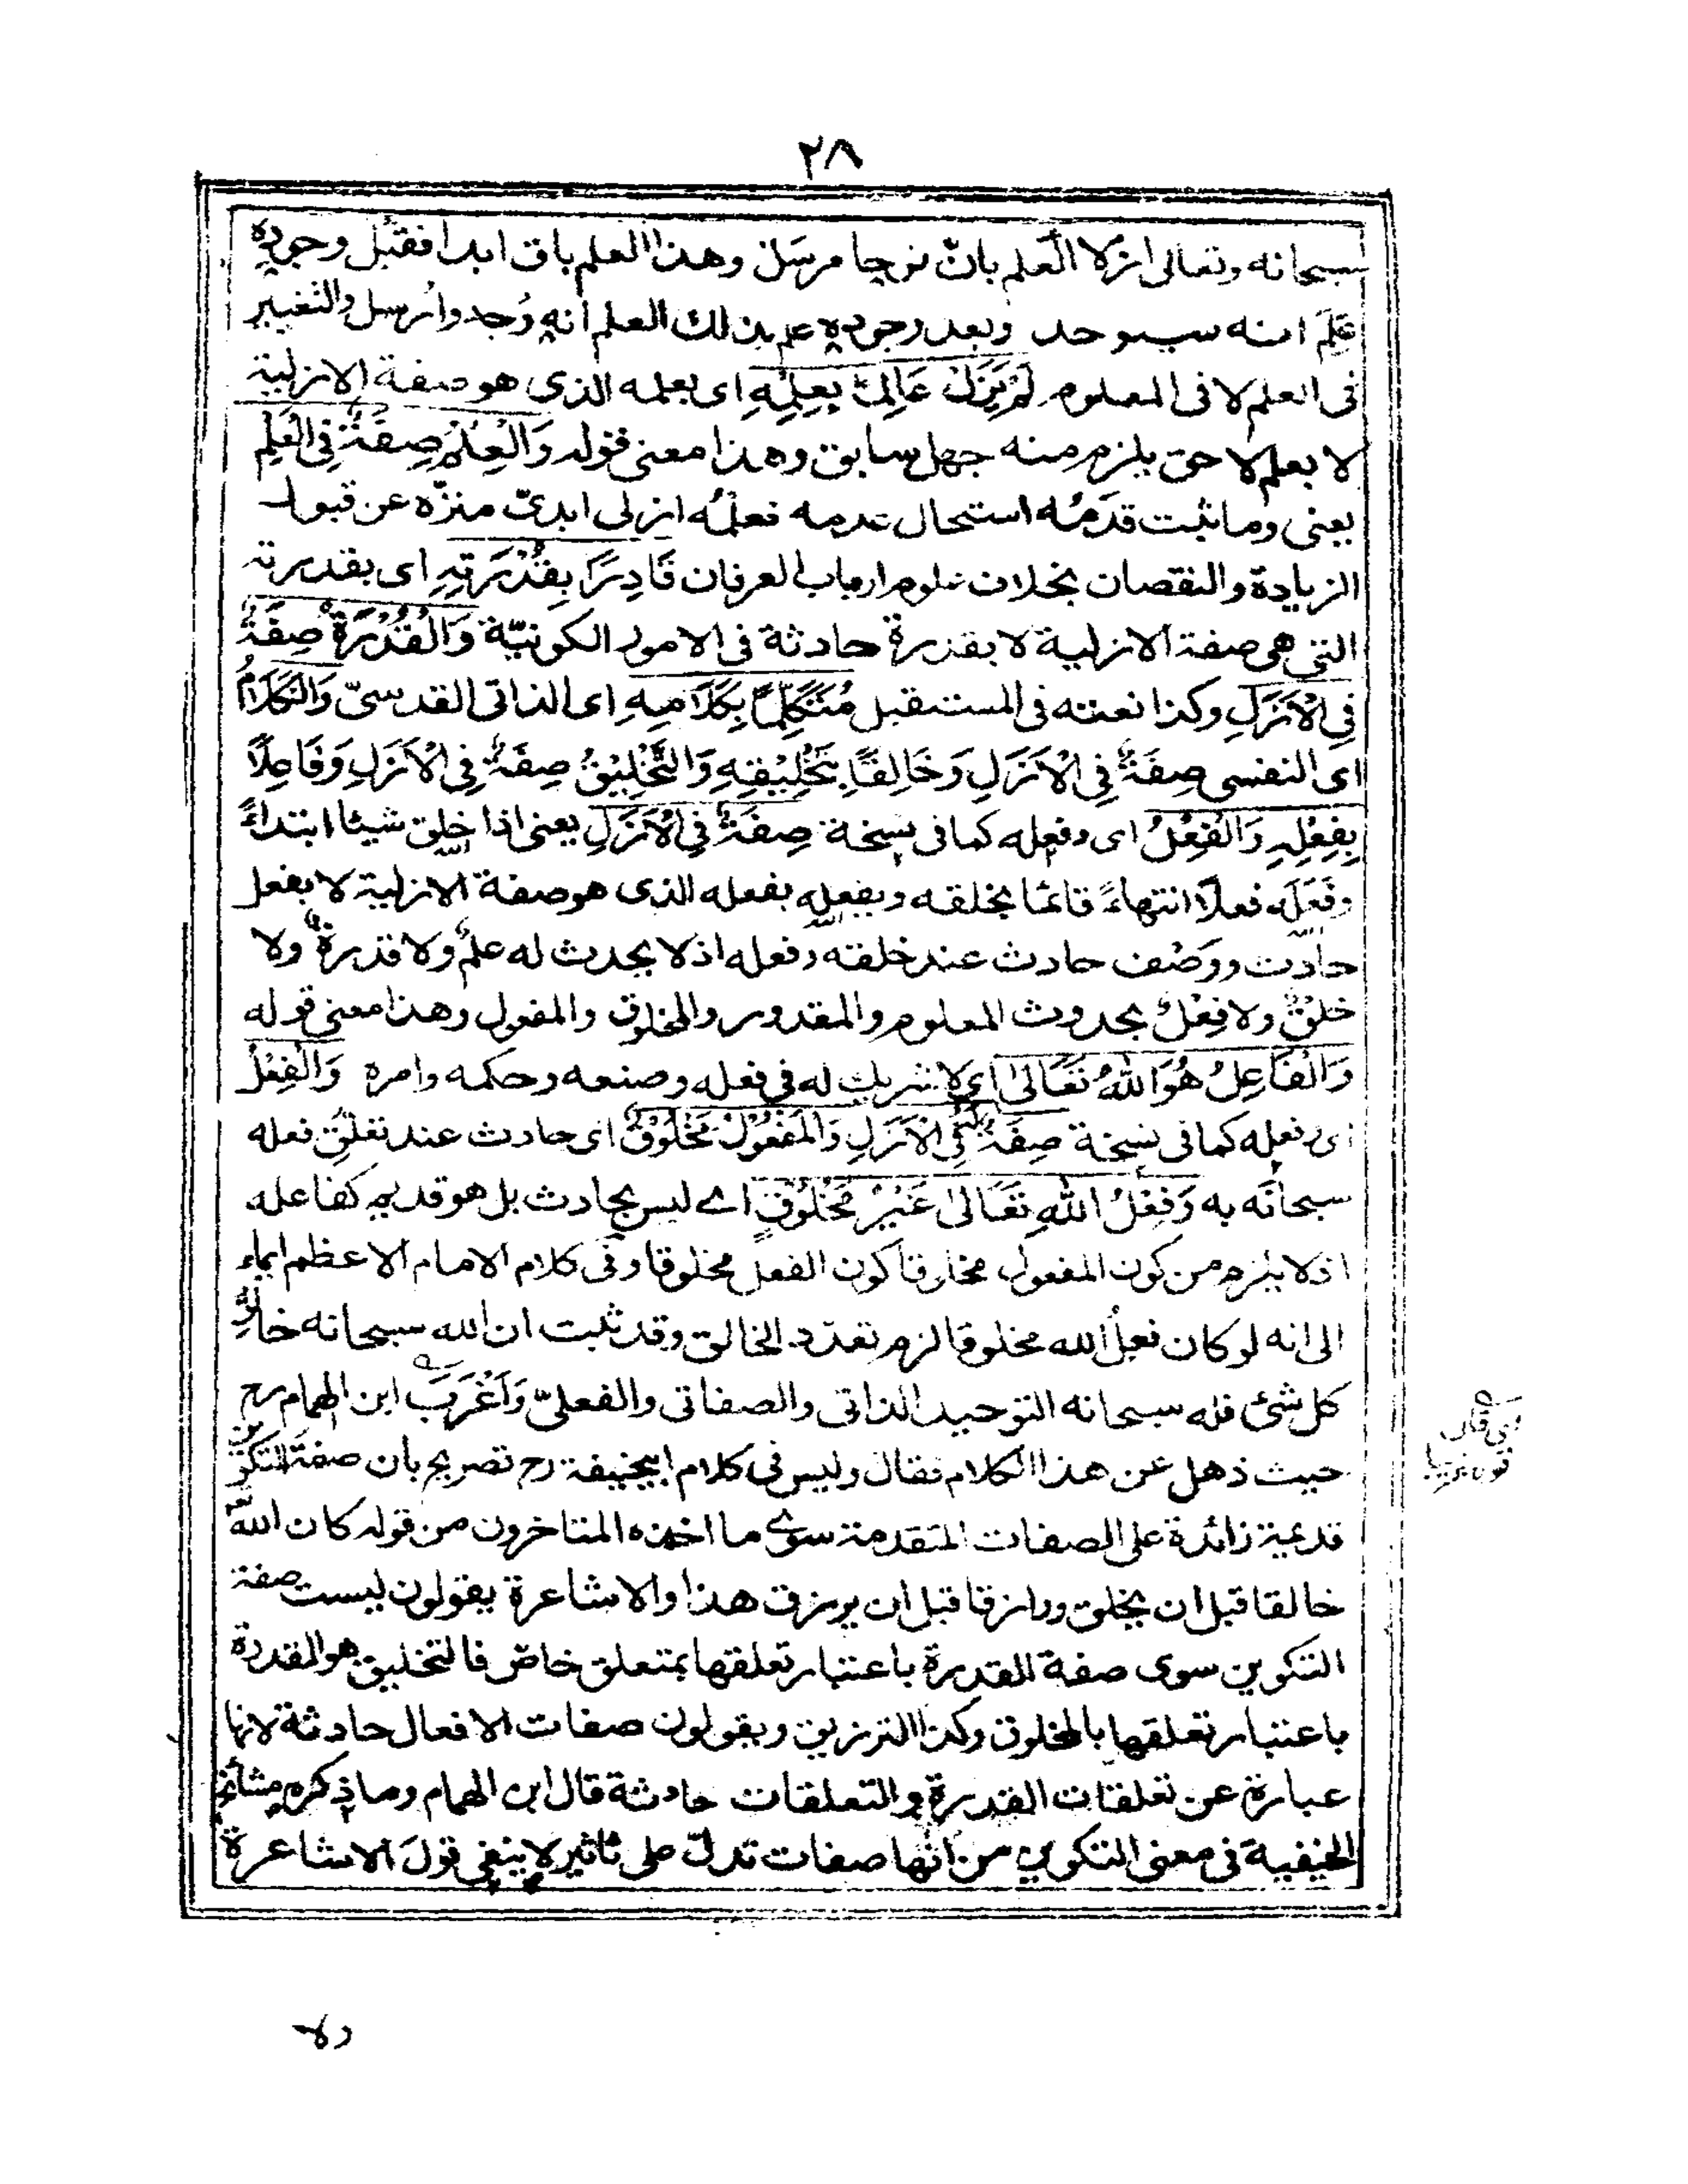 ٢٨
سبحانه وتعالى ازلا العلم بانّ نوحا مرسَل وهذا العلم باق ابدا فقبل وجوده
عَلِمَ انه سيوجد وبعد وجوده علم بذلك العلم انه وُجد واُرسل والتغيير
فى العلم لا فى المعلوم لَمْ يَزَلْ عَالِمًا بِعِلْمِهِ اى بعلمه الذى هو صفة الازلية
لا بعلم لاحق يلزم منه جهل سابق وهذا معنى قوله وَالْعِلْمُ صِفَةٌ فِى الْعِلْمِ
يعنى وما ثبت قدَمُه استحال عدمه فعلمُه ازلى ابدىّ منزّه عن قبول
الزيادة والنقصان بخلاف علوم ارباب العرفان قَادِرًا بِقُدْرَتِهِ اى بقدرته
التى هى صفة الازلية لا بقدرة حادثة فى الامور الكونيّة وَالْقُدْرَةُ صِفَةٌ
فِى الْاَزَلِ وكذا نعته فى المستقبل مُتَكَلِّمًا بِكَلَامِهِ اى الذاتى القدسىّ وَالْكَلَامُ
اى النفسى صِفَةٌ فِى الْاَزَلِ وَخَالِقًا بِتَخْلِيْقِهِ وَالتَّخْلِيْقُ صِفَةٌ فِى الْاَزَلِ وَفَاعِلًا
بِفِعْلِهِ وَالْفِعْلُ اى وفعله كما فى نسخة صِفَةٌ فِى الْاَزَلِ يعنى اذا خلق شيئا ابتداءً
وفَعَلَه فعلًا انتهاءً قائما بخلقه وبفعله بفعله الذى هو صفة الازلية لا بفعل
حادث ووَصْف حادث عند خلقه وفعله اذ لا يحدث له علمٌ ولا قدرةٌ ولا
خلقٌ ولا فِعْلٌ بحدوث المعلوم والمقدور والمخلوق والمفعول وهذا معنى قوله
وَالْفَاعِلُ هُوَ اللهُ تَعَالىٰ اى لا شريك له فى فعله وصنعه وحكمه وامره وَالْفِعْلُ
اى وفعله كما فى نسخة صِفَةٌ فِى الْاَزَلِ وَالْمَفْعُوْلُ مَخْلُوْقٌ اى حادث عند تعلّق فعله
سبحانَه به وَفِعْلُ اللهِ تَعَالىٰ غَيْرُ مَخْلُوْقٍ اے ليس بحادث بل هو قديم كفاعله
اذ لا يلزم من كون المفعول مخلوقا كون الفعل مخلوقا وفى كلام الامام الاعظم ايماء
الى انه لو كان فعلُ الله مخلوقا لزم تعدّد الخالق وقد ثبت ان الله سبحانه خالق
كل شئ فله سبحانه التوحيد الذاتى والصفاتى والفعلىّ وَاَغْرَبَ ابن الهمام رح
حيث ذهل عن هذا الكلام فقال وليس فى كلام ابيحنيفة رح تصريح بان صفةَ التكوين
قديمة زائدة على الصفات المتقدمة سوى ما اخذه المتاخرون من قوله كان اللهُ
خالقا قبل ان يخلق ورازقا قبل ان يرزق هذا والاشاعرة يقولون ليست صفة
التكوين سوى صفة القدرة باعتبار تعلقها بمتعلق خاصّ فالتخليق هو القدرة
باعتبار تعلقها بالمخلوق وكذا الترزيق ويقولون صفات الافعال حادثة لانها
عبارة عن تعلقات القدرة والتعلقات حادثة قال ابن الهمام وما ذكره مشائخ
الحنيفية فى معنى التكوين من انّها صفات تدلّ على تاثير لا ينفى قولَ الاشاعرة
ولا